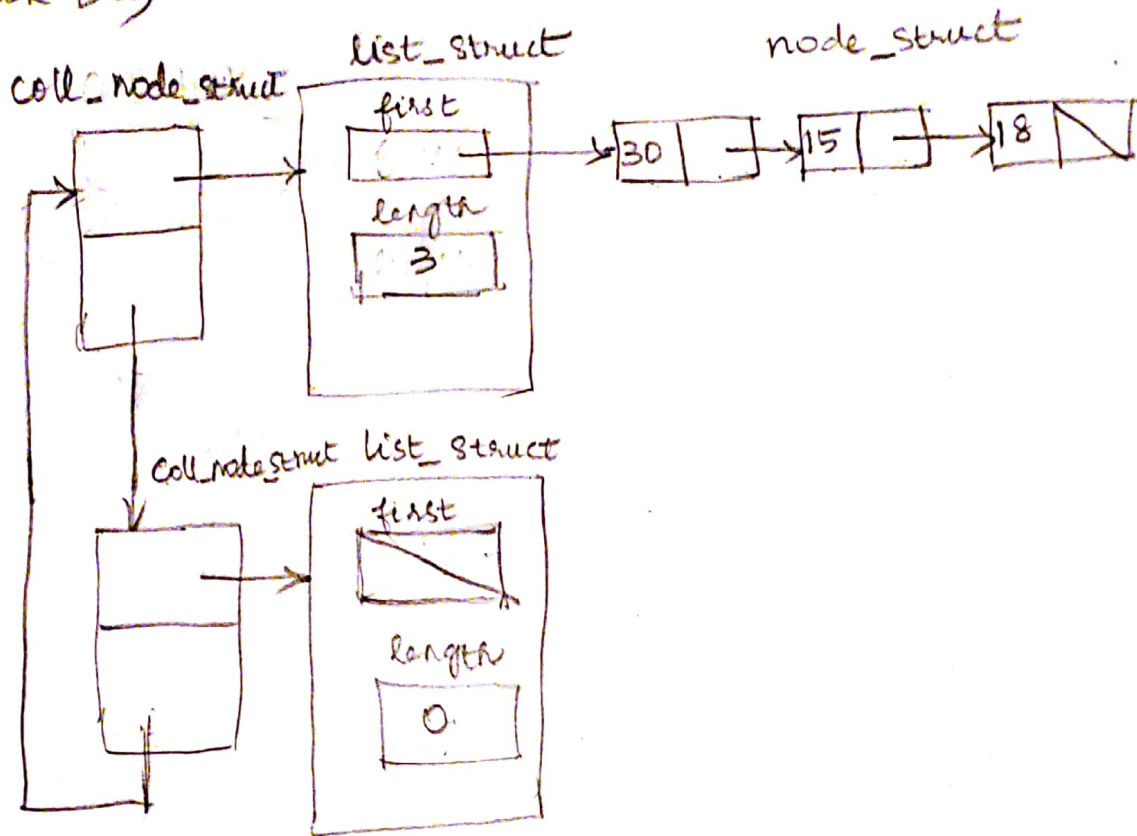 list_struct
node_struct
coll_node_struct
first
30
15
18
length
3
coll_node_struct
list_struct
first
length
0